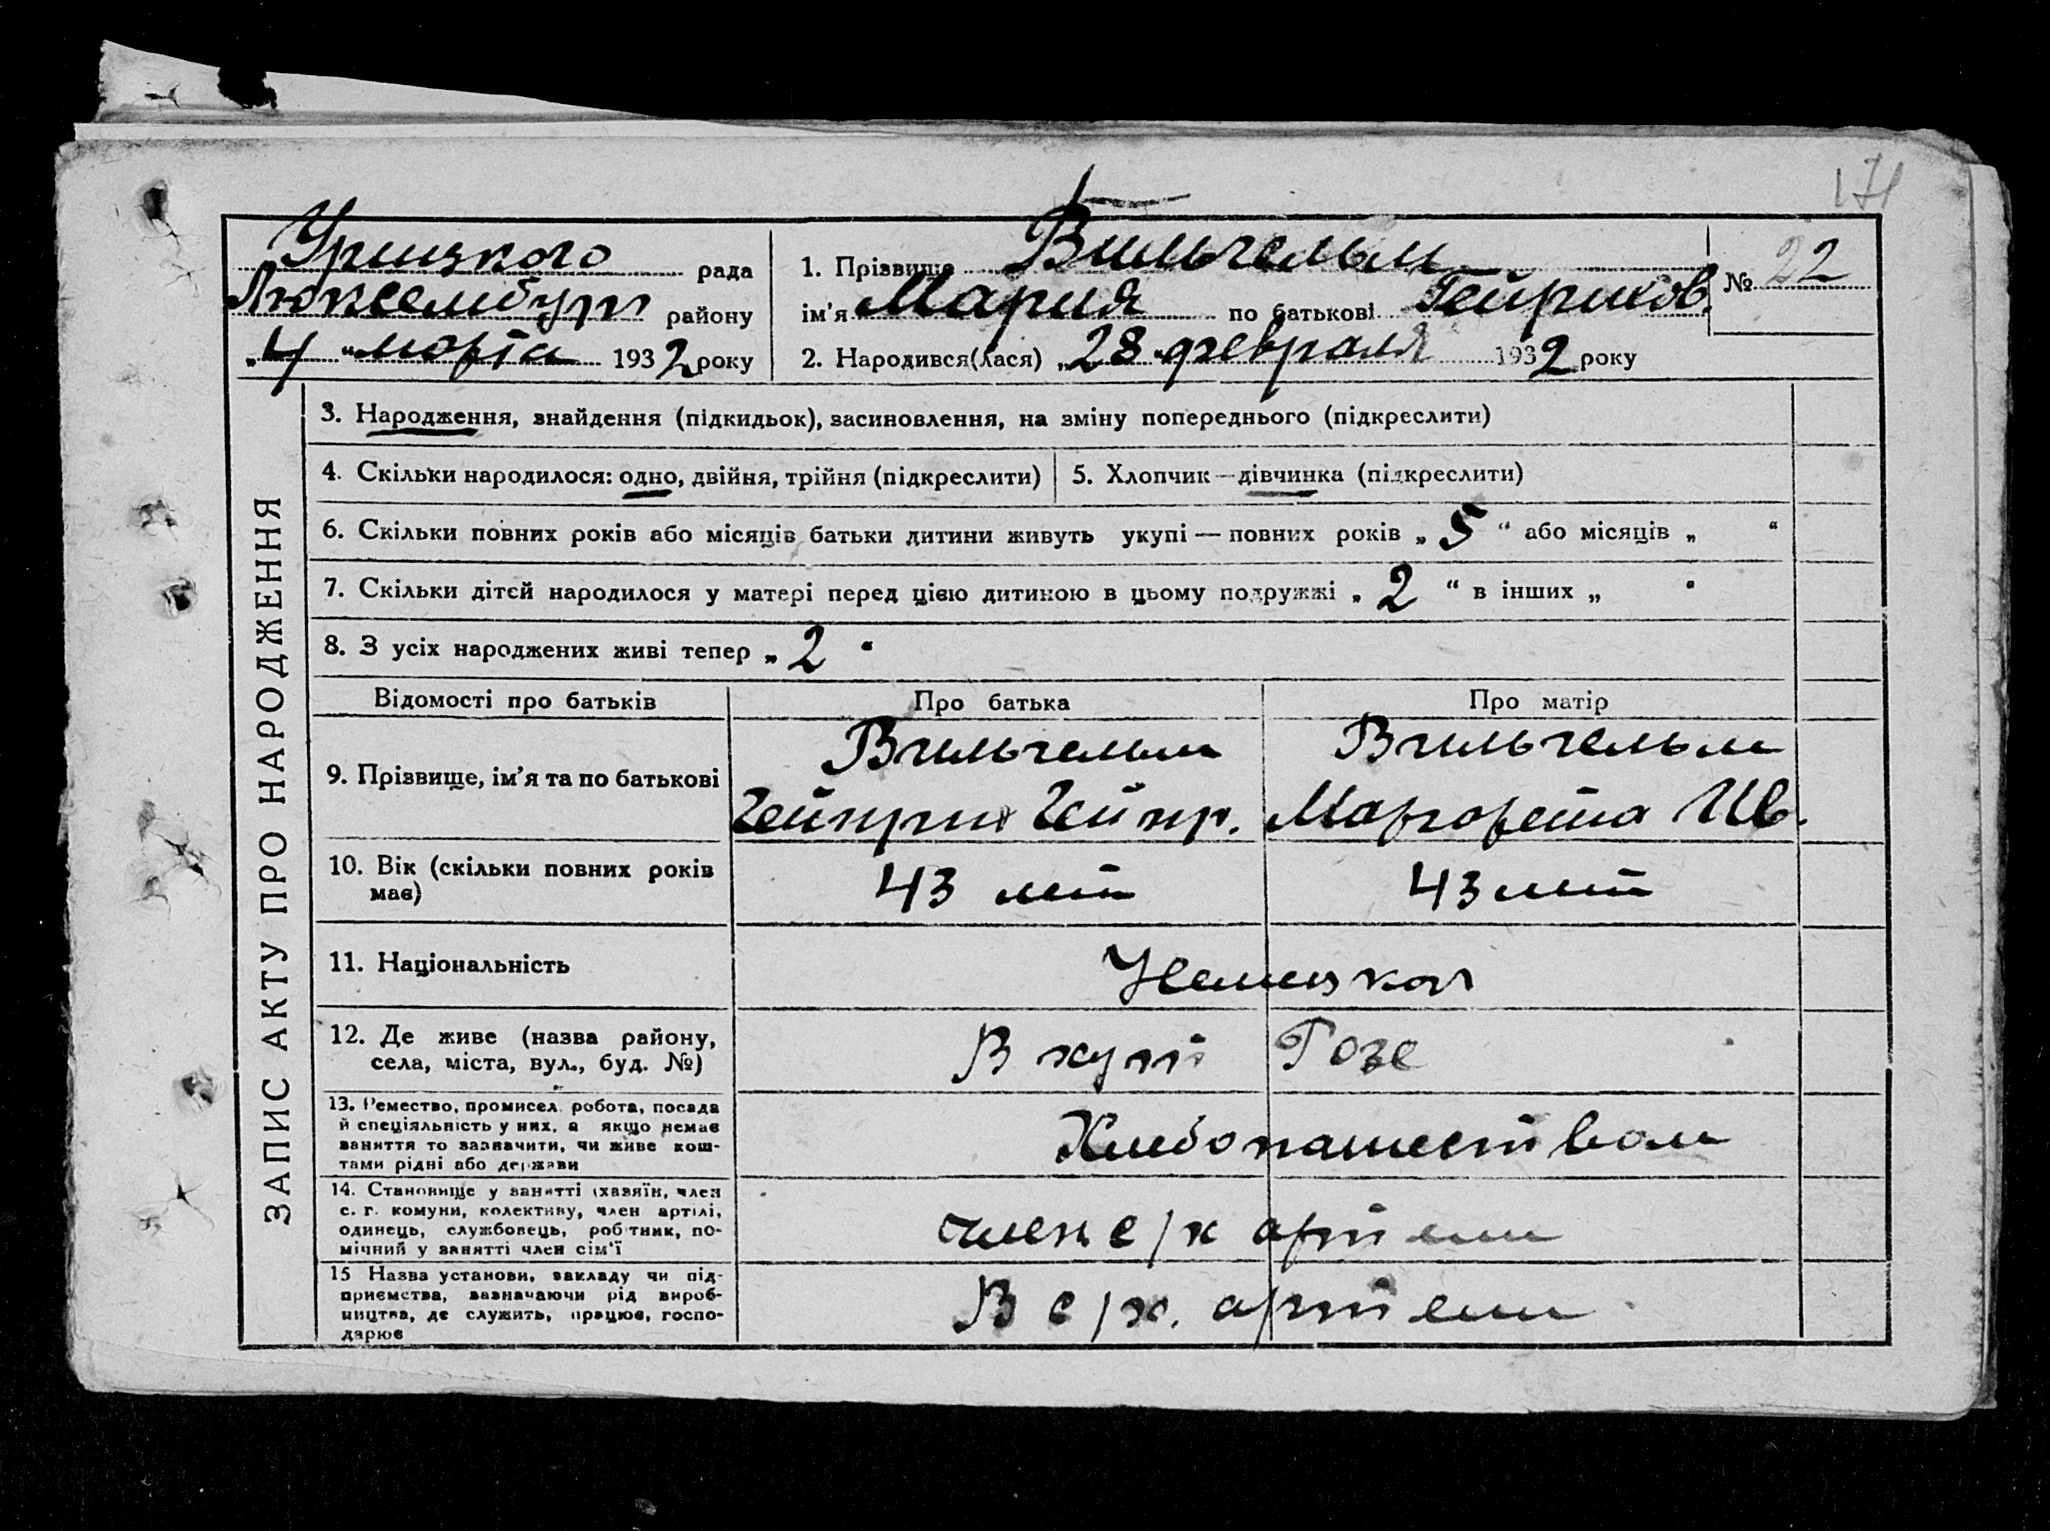 171
Урицкого рада
Люксембург району
„4“ марта 1932 року
1. Прізвище Вильгельм
ім'я Мария по батькові Гейриков.
№ 22
2. Народився(лася) „28“ февраля 1932 року
ЗАПИС АКТУ ПРО НАРОДЖЕННЯ
3. Народження, знайдення (підкидьок), засиновлення, на зміну попереднього (підкреслити)
4. Скільки народилося: одно, двійня, трійня (підкреслити)
5. Хлопчик — дівчинка (підкреслити)
6. Скільки повних років або місяців батьки дитини живуть укупі — повних років „5“ або місяців „ “
7. Скільки дітей народилося у матері перед цією дитиною в цьому подружжі „2“ в інших „ “
8. З усіх народжених живі тепер „2“
Відомості про батьків
Про батька
Про матір
9. Прізвище, ім'я та по батькові
Вильгельм
Гейнрих Гейнр.
Вильгельм
Маргарета Ив.
10. Вік (скільки повних років
має)
43 лет
43 лет
11. Національність
Немецкая
12. Де живе (назва району,
села, міста, вул., буд. №)
В хут Розе
13. Ремество, промисел, робота, посада
й спеціяльність у них, а якщо немає
заняття то зазначити, чи живе кош-
тами рідні або держави
Хлебопашеством
14. Становище у занятті (хазяїн, член
с. г. комуни, колективу, член артілі,
одинець, службовець, робітник, по-
мічний у занятті член сім'ї
член с/х артели
15 Назва установи, закладу чи під-
приємства, зазначаючи рід вироб-
ництва, де служить, працює, госпо-
дарює
В с/х. артели